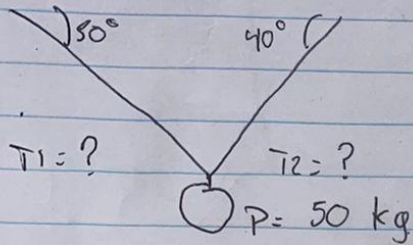 50° 40°
T1 = ? T2 = ?
P = 50 kg